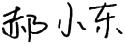 郝小东